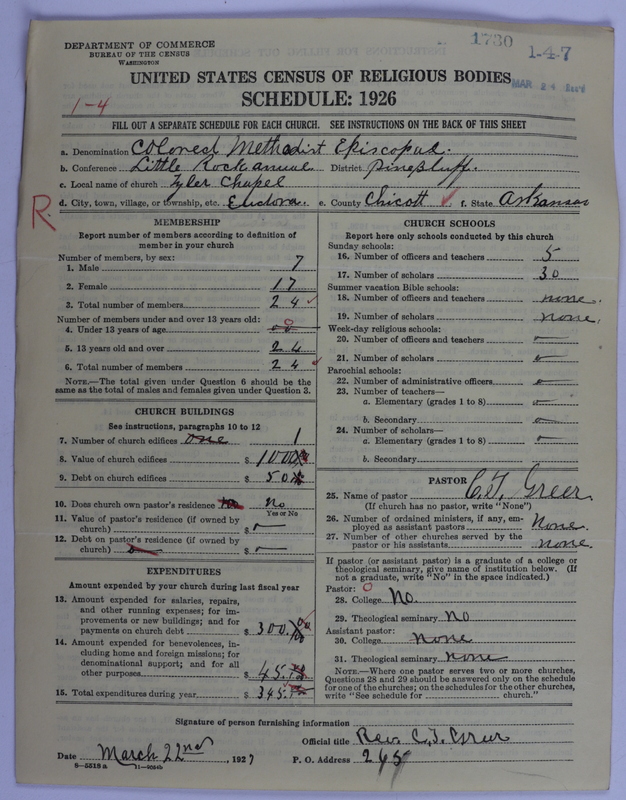 1730
1-4-7
DEPARTMENT OF COMMERCE
BUREAU OF THE CENSUS
WASHINGTON
MAR 24
UNITED STATES CENSUS OF RELIGIOUS BODIES
SCHEDULE: 1926
1-4
FILL OUT A SEPARATE SCHEDULE FOR EACH CHURCH. SEE INSTRUCTIONS ON THE BACK OF THIS SHEET
a. Denomination Colored Methodist Episcopal.
b. Conference Little Rock annual District Pinebluff.
c. Local name of church Tyler Chapel
d. City, town, village, or township, etc. Eudora. e. County Chicott f. State Arkansas
R.
MEMBERSHIP
Report number of members according to definition of
member in your church
Number of members, by sex:
1. Male 7
2. Female 17
3. Total number of members 24
Number of members under and over 13 years old:
4. Under 13 years of age
5. 13 years old and over 24
6. Total number of members 24
NOTE.—The total given under Question 6 should be the
same as the total of males and females given under Question 3.
CHURCH BUILDINGS
See instructions, paragraphs 10 to 12
7. Number of church edifices one 1
8. Value of church edifices $ 1000
9. Debt on church edifices $ 50
10. Does church own pastor's residence No
Yes or No
11. Value of pastor's residence (if owned by
church) $
12. Debt on pastor's residence (if owned by
church) $
EXPENDITURES
Amount expended by your church during last fiscal year
13. Amount expended for salaries, repairs,
and other running expenses; for im-
provements or new buildings; and for
payments on church debt $ 300.
14. Amount expended for benevolences, in-
cluding home and foreign missions; for
denominational support; and for all
other purposes $ 45.
15. Total expenditures during year $ 345.
CHURCH SCHOOLS
Report here only schools conducted by this church
Sunday schools:
16. Number of officers and teachers 5
17. Number of scholars 30
Summer vacation Bible schools:
18. Number of officers and teachers none.
19. Number of scholars none.
Week-day religious schools:
20. Number of officers and teachers
21. Number of scholars
Parochial schools:
22. Number of administrative officers
23. Number of teachers—
a. Elementary (grades 1 to 8)
b. Secondary
24. Number of scholars—
a. Elementary (grades 1 to 8)
b. Secondary
PASTOR
25. Name of pastor C.T. Greer.
(If church has no pastor, write "None")
26. Number of ordained ministers, if any, em-
ployed as assistant pastors None.
27. Number of other churches served by the
pastor or his assistants none.
If pastor (or assistant pastor) is a graduate of a college or
theological seminary, give name of institution below. (If
not a graduate, write "No" in the space indicated.)
Pastor:
28. College No.
29. Theological seminary No
Assistant pastor:
30. College none
31. Theological seminary none
NOTE.—Where one pastor serves two or more churches,
Questions 28 and 29 should be answered only on the schedule
for one of the churches; on the schedules for the other churches,
write "See schedule for church."
Signature of person furnishing information
Official title Rev. C.T. Greer
Date March 22nd, 1927 P. O. Address 245
8—5518 a 11—9054b